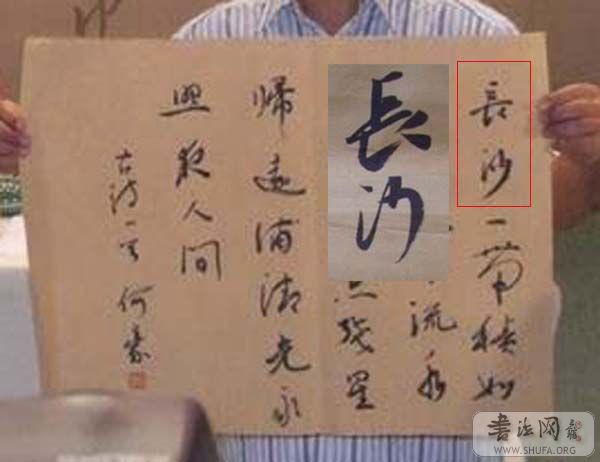 長沙一帶積如
流水
点残星
歸遠浦清光永
照夜人间
古诗一首 何
長沙
書法网
WWW.SHUFA.ORG